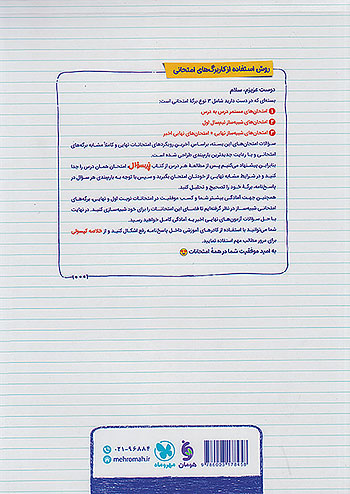 روش استفاده از کاربرگ‌های امتحانی
دوست عزیزم، سلام
بسته‌ای که در دست دارید شامل ۳ نوع برگهٔ امتحانی است:
۱ امتحان‌های مستمر درس به درس
۲ امتحان‌های شبیه‌ساز نیم‌سال اول
۳ امتحان‌های شبیه‌ساز نهایی + امتحان‌های نهایی اخیر
سؤالات امتحان‌های این بسته، براساس آخرین رویکردهای امتحانات نهایی و کاملاً مشابه برگه‌های
امتحانی و با رعایت جدیدترین بارم‌بندی طراحی شده است.
بنابراین پیشنهاد می‌کنیم پس از مطالعهٔ هر درس از کتاب پرسؤال، امتحان همان درس را جدا
کنید و در شرایط مشابه نهایی از خودتان امتحان بگیرید و سپس با توجه به بارم‌بندی هر سؤال در
پاسخ‌نامه، برگهٔ خود را تصحیح و تحلیل کنید.
همچنین جهت آمادگی بیشتر شما و کسب موفقیت در امتحانات نوبت اول و نهایی، برگه‌های
امتحانی شبیه‌ساز در نظر گرفته‌ایم تا فضای این امتحانات را برای خود شبیه‌سازی کنید. در نهایت
با حل سؤالات آزمون‌های نهایی اخیر به آمادگی کامل خواهید رسید.
شما می‌توانید با استفاده از کادرهای آموزشی داخل پاسخ‌نامه رفع اشکال کنید و از خلاصه کپسولی
برای مرور مطالب مهم استفاده نمایید.
به امید موفقیت شما در همهٔ امتحانات
۰۲۱-۹۶۸۸۴
mehromah.ir
مهروماه
هرمان
9 786003 178458